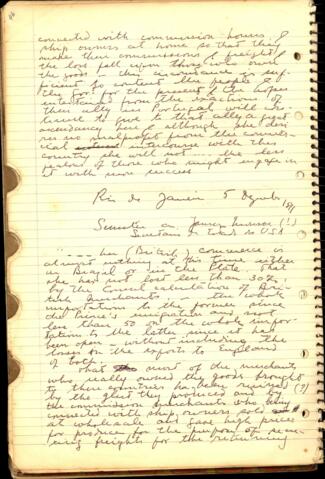 connected with commission houses &
ship owners at home so that they
make their commissions & freight &
the loss fall upon those who own
the goods - this circumstance is suf-
ficient to content the people &
the gov. for the present & the hopes
entertained from the exactions of
their ally in Portugal will in-
duce to give to that ally a great
ascendancy here although she deri
ves no small profit from the commer-
cial intercourse with this
country she will not .... the less
jealous of those who might engage in
it with more success
Rio de Janeiro 5
Sumter
Secretary of State USA
".... her (British) commerce is
almost nothing at this time either
in Brazil or in the Plate. That
she has not lost less than 30%
by the usual calculations of Bri-
tish merchants - the whole
importation to the former since
the prince's emigration and not
less than 50 on the whole impor-
tations to the latter since it has
been open - without including the
losses on the exports to England
of both.
that most of the merchants
who really owned the goods brought
to these countries has been ruined (?)
by the glut they produced and by
the commission merchants who being
connected with ship owners sold
at wholesale and gave high prices
for produce for the purpose of secu-
ring freights for the returning